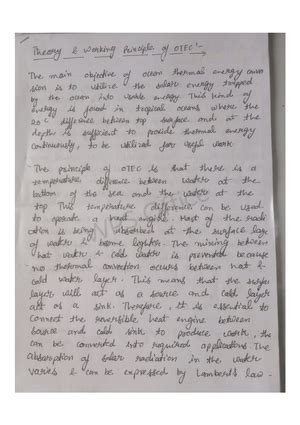 Theory & Working Principle of OTEC:-
The main objective of ocean thermal energy conver
sion is to utilize the solar energy trapped
by the ocean into usable energy. This kind of
energy is found in tropical oceans where the
20°C difference between top surface and at the
depth is sufficient to provide thermal energy
continuously, to be utilized for useful work.
- The principle of OTEC is that there is a
temperature difference between water at the
bottom of the sea and the water at the
top. This temperature difference can be used
to operate a heat engine. Most of the radi
ation is being absorbed at the surface layer
of water & become lighter. The mixing between
hot water & cold water is prevented because
no thermal convection occurs between hot &
cold water layer. This means that the surface
layer will act as a source and cold layer
act as a sink. Therefore, it is essential to
connect the reversible heat engine between
source and cold sink to produce work, the
can be converted into required applications. The
absorption of solar radiation in the water
varies & can be expressed by Lambert's law -